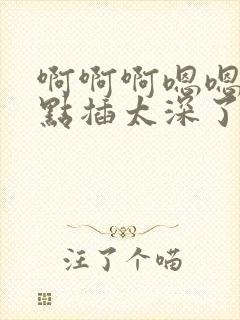 啊啊啊嗯嗯
點插太深了
注了个喵